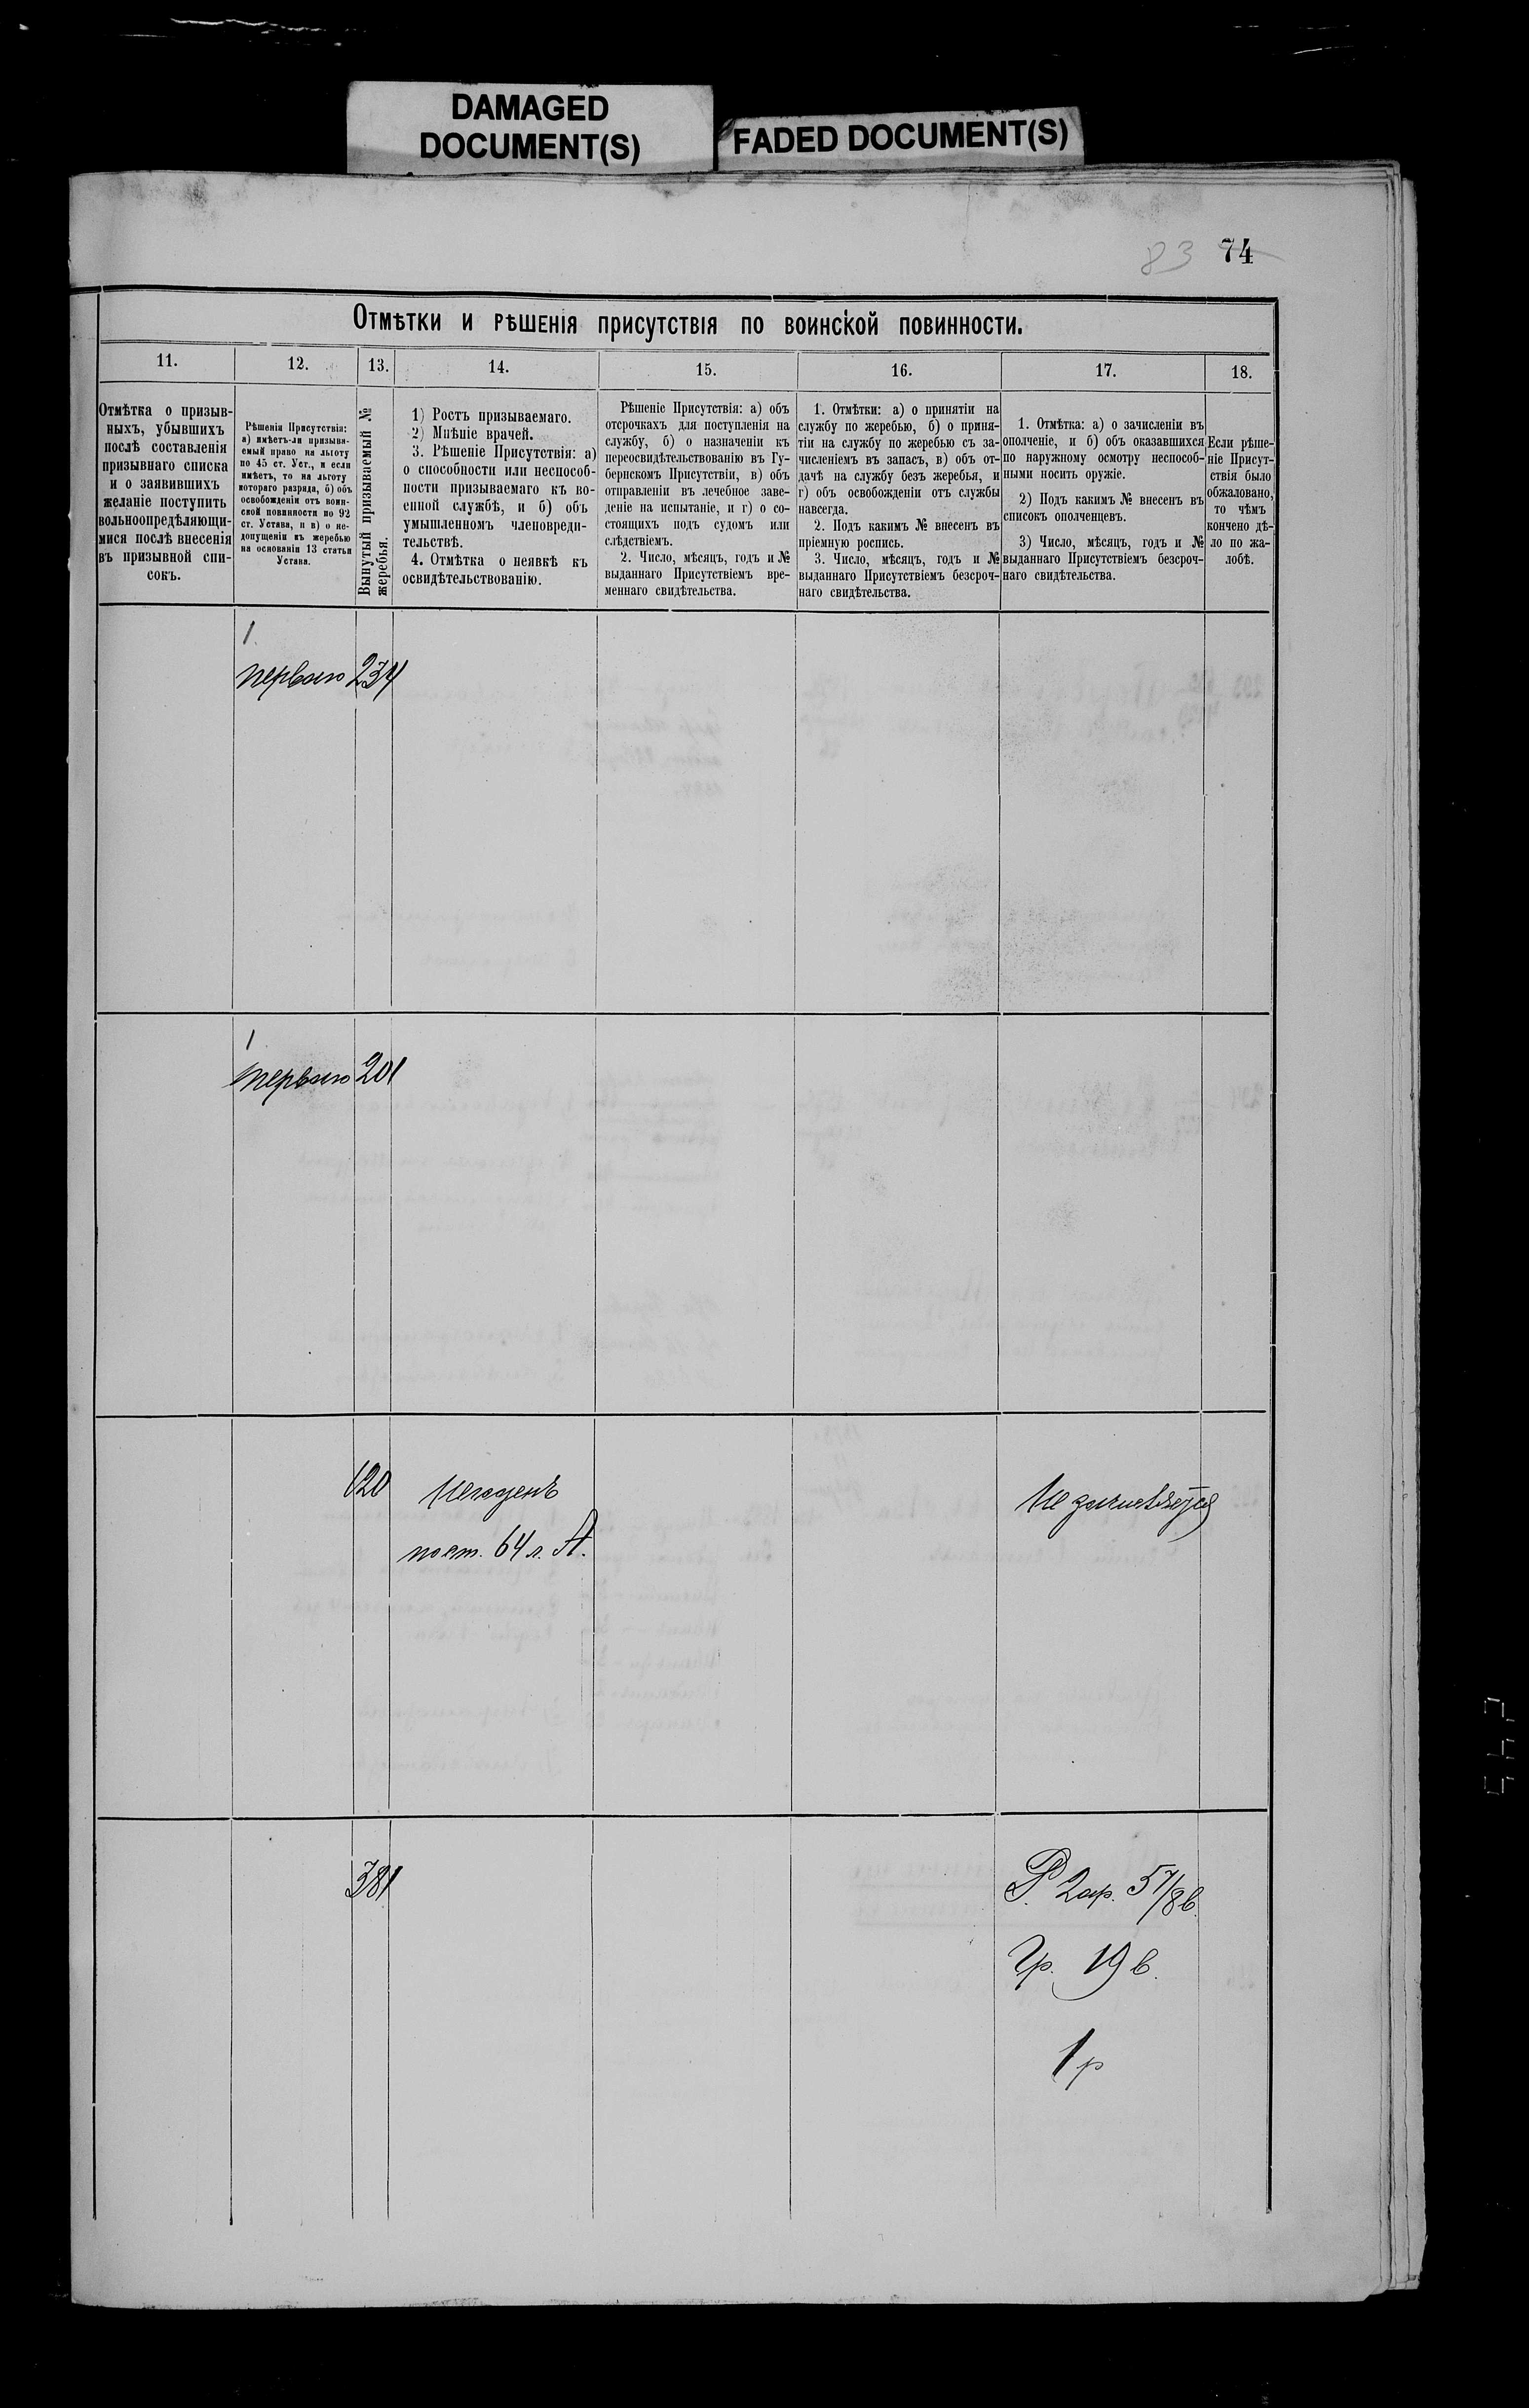 DAMAGED
DOCUMENT(S)
FADED DOCUMENT(S)
83 74
Отмѣтки и рѣшенія присутствія по воинской повинности.
11.
12.
13.
14.
15.
16.
17.
18.
Отмѣтка о призыв-
ныхъ, убывшихъ
послѣ составленія
призывнаго списка
и о заявившихъ
желаніе поступить
вольноопредѣляющи-
мися послѣ внесенія
въ призывной спи-
сокъ.
Рѣшенія Присутствія:
а) имѣетъ-ли призыва-
емый право на льготу
по 45 ст. Уст., и если
имѣетъ, то на льготу
котораго разряда, б) объ
освобожденіи отъ воин-
ской повинности по 92
ст. Устава, и в) о не-
допущеніи къ жеребью
на основаніи 13 статьи
Устава.
Вынутый призываемый №
жеребья.
1) Ростъ призываемаго.
2) Мнѣніе врачей.
3. Рѣшеніе Присутствія: а)
о способности или неспособ-
ности призываемаго къ во-
енной службѣ, и б) объ
умышленномъ членовреди-
тельствѣ.
4. Отмѣтка о неявкѣ къ
освидѣтельствованію.
Рѣшеніе Присутствія: а) объ
отсрочкахъ для поступленія на
службу, б) о назначеніи къ
переосвидѣтельствованію въ Гу-
бернскомъ Присутствіи, в) объ
отправленіи въ лечебное заве-
деніе на испытаніе, и г) о со-
стоящихъ подъ судомъ или
слѣдствіемъ.
2. Число, мѣсяцъ, годъ и №
выданнаго Присутствіемъ вре-
меннаго свидѣтельства.
1. Отмѣтки: а) о принятіи на
службу по жеребью, б) о приня-
тіи на службу по жеребью съ за-
численіемъ въ запасъ, в) объ от-
дачѣ на службу безъ жеребья, и
г) объ освобожденіи отъ службы
навсегда.
2. Подъ какимъ № внесенъ въ
пріемную роспись.
3. Число, мѣсяцъ, годъ и №
выданнаго Присутствіемъ безсроч-
наго свидѣтельства.
1. Отмѣтка: а) о зачисленіи въ
ополченіе, и б) объ оказавшихся
по наружному осмотру неспособ-
ными носить оружіе.
2) Подъ какимъ № внесенъ въ
списокъ ополченцевъ.
3) Число, мѣсяцъ, годъ и №
выданнаго Присутствіемъ безсроч-
наго свидѣтельства.
Если рѣше-
ніе Присут-
ствія было
обжаловано,
то чѣмъ
кончено дѣ-
ло по жа-
лобѣ.
1.
перваго 234
1
перваго 201
120
Негоденъ
по ст. 64 л. А.
Не зачисляется
381
Р. 2 ар. 5 7/8 в.
Гр. 19 в.
1 р